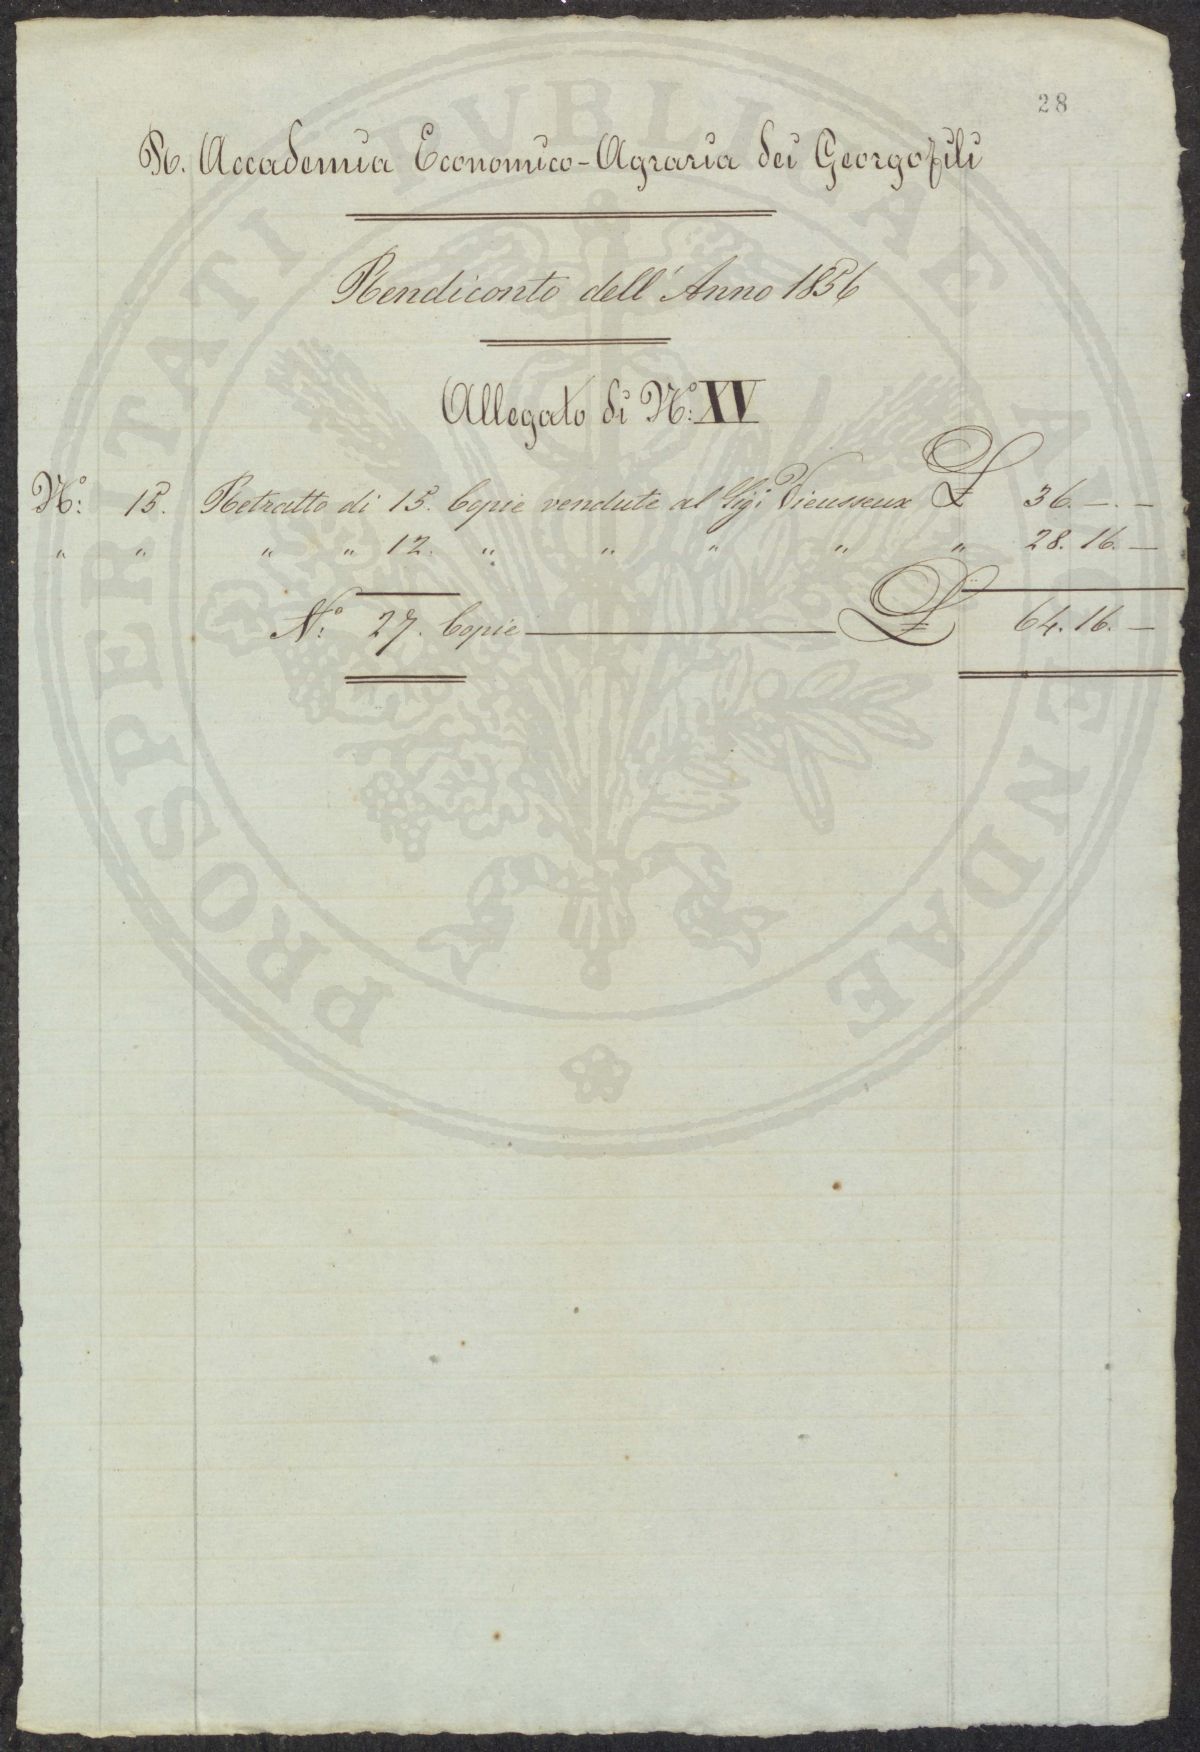 28
R. Accademia Economico-Agraria dei Georgofili
Rendiconto dell'Anno 1856
Allegato di N.º XV
N.º: 15. Retratto di 15. Copie vendute al Sig.r Vieusseux £ 36. — . —
" " " " 12. " " " " " 28. 16. —
N.º: 27. Copie £ 64. 16. —
PROSPERITATI PVBLICAE AVGENDAE